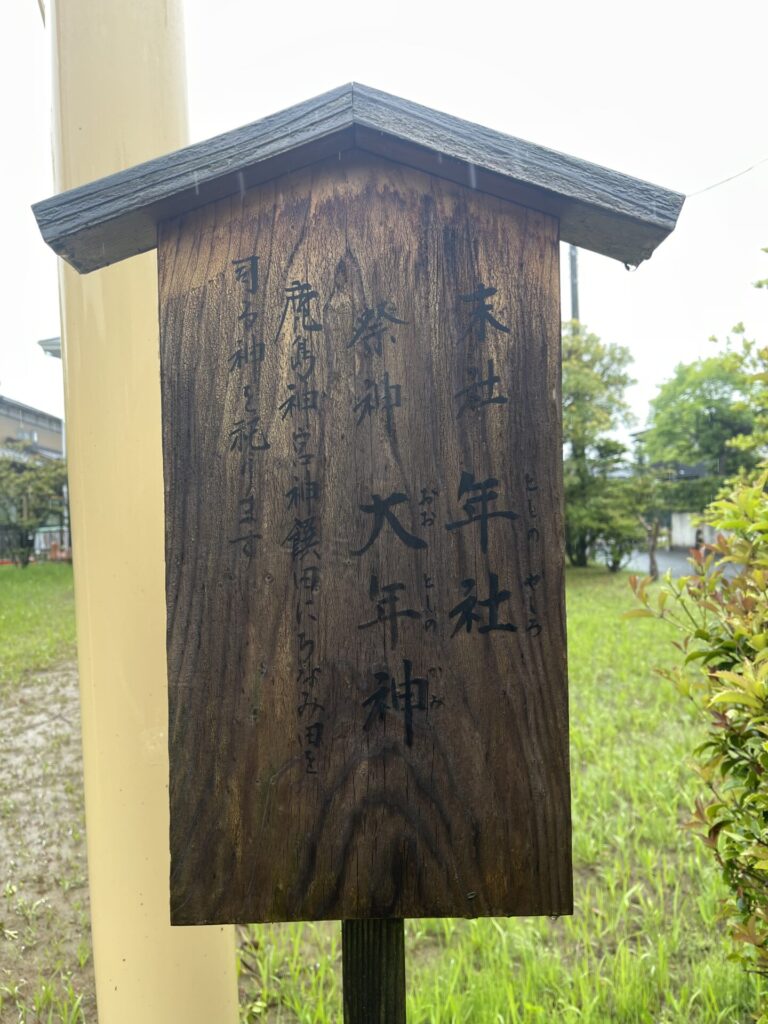 末社 年社
としの やしろ
祭神 大年神
おお としの かみ
鹿島神宮神饌田にちなみ田を
司る神を祀ります